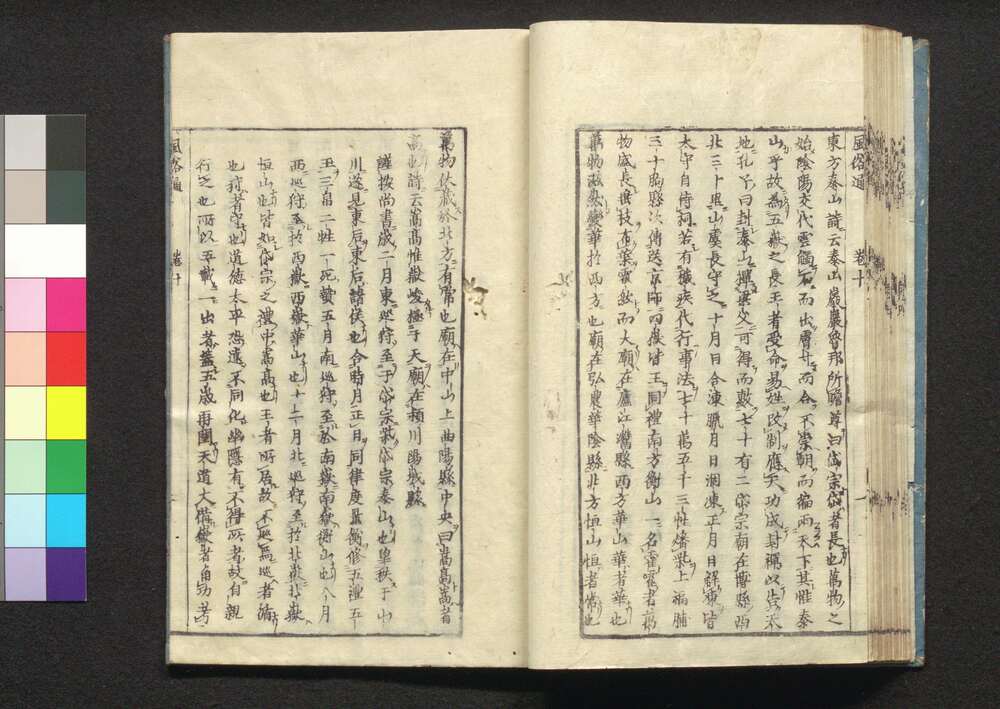 風俗通　卷十　一
東方泰山詩云泰山巖巖魯邦所瞻尊曰岱宗岱者長也萬物之
始陰陽交代雲觸石而出膚寸而合不崇朝而徧雨天下其惟泰
山乎故為五嶽之長王者受命易姓改制應天功成封禪以告天
地孔子曰封泰山禪梁父可得而數七十有二岱宗廟在博縣西
北三十里山虞長守之十月日合凍臘月日涸凍正月日解凍皆
太守自侍祠若有穢疾代行事法七十萬五千三牲燔柴上福脯
三十朐縣次傳送京師四嶽皆王同禮南方衡山一名霍霍者萬
物盛長垂枝布葉霍然而大廟在廬江灊縣西方華山華者華也
萬物滋熟變華於西方也廟在弘農華陰縣北方恒山恒者常也
萬物伏藏於北方有常也廟在中山上曲陽縣中央曰嵩高嵩者
高也詩云嵩高惟嶽峻極于天廟在潁川陽城縣
謹按尚書歲二月東巡狩至于岱宗柴岱宗泰山也望秩于山
川遂見東后東后諸侯也合時月正日同律度量衡修五禮五
玉三帛二牲一死贄五月南巡狩至於南嶽南嶽衡山也八月
西巡狩至於西嶽西嶽華山也十一月北巡狩至於北嶽北嶽
恒山也皆如岱宗之禮中嵩高也王者所居故不巡焉巡者循
也狩者守也道德太平恐遠不同化幽隱有不得所者故自親
行之也所以五載一出者蓋五歲再閏天道大備嶽者角功考
風俗通　卷十